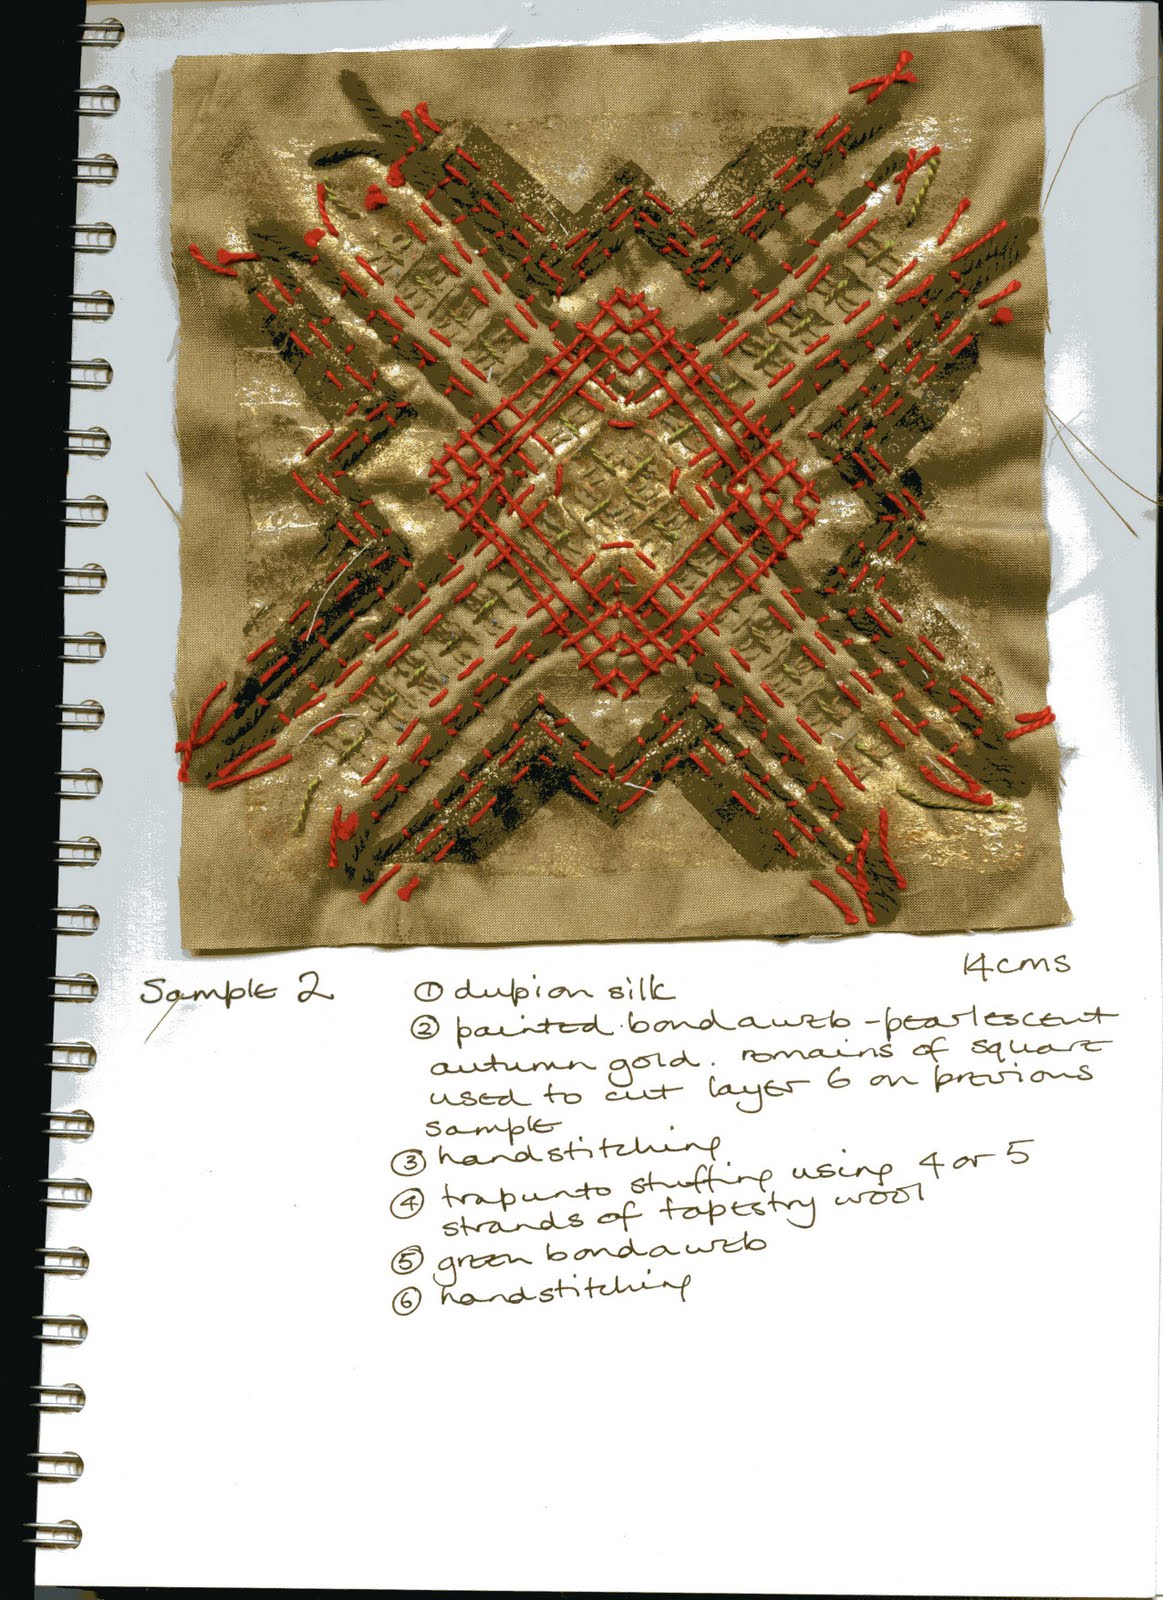 14cms
Sample 2
① dupion silk
② painted bondaweb - pearlescent
autumn gold. remains of square
used to cut layer 6 on previous
sample
③ handstitching
④ trapunto stuffing using 4 or 5
strands of tapestry wool
⑤ green bondaweb
⑥ handstitching